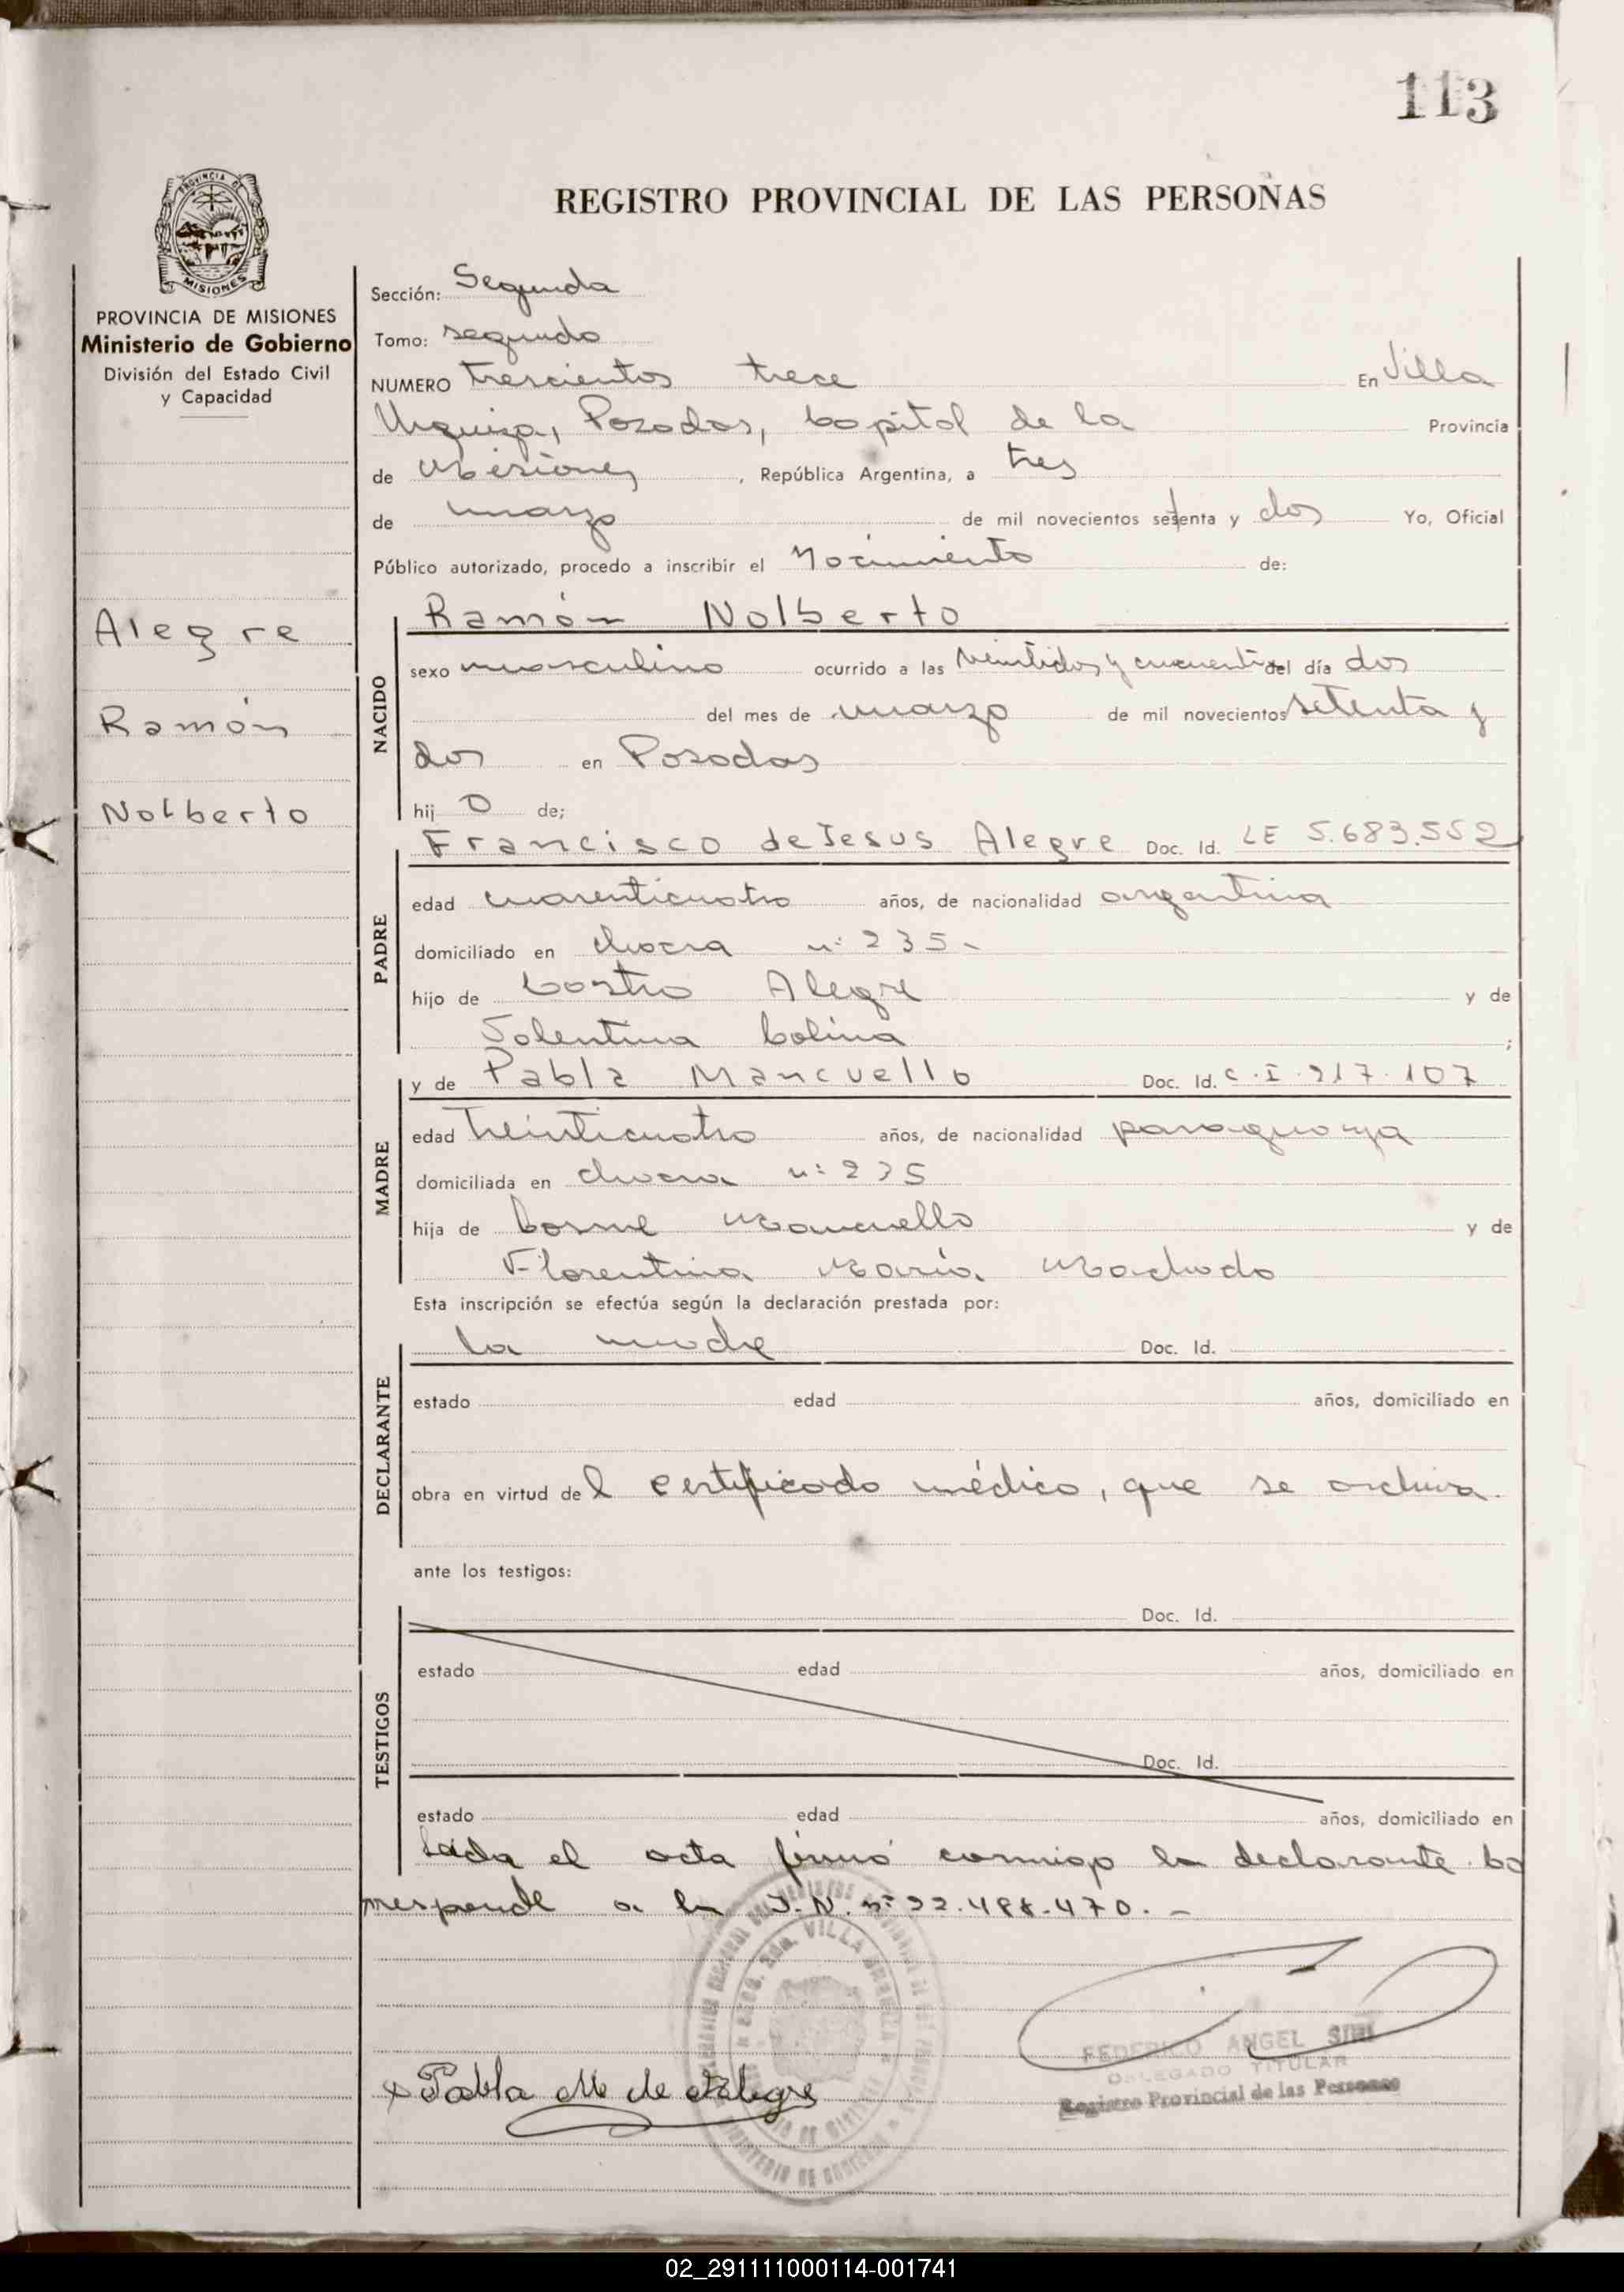 113
REGISTRO PROVINCIAL DE LAS PERSONAS
PROVINCIA DE MISIONES
PROVINCIA DE MISIONES
Ministerio de Gobierno
División del Estado Civil
y Capacidad
Alegre
Ramón
Nolberto
Sección: Segunda
Tomo: segundo
NUMERO trescientos trece En Villa
Urquiza, Posadas, Capital de la Provincia
de Misiones, República Argentina, a tres
de marzo de mil novecientos setenta y dos Yo, Oficial
Público autorizado, procedo a inscribir el Nacimiento de:
NACIDO
Ramón Nolberto
sexo masculino ocurrido a las veintidos y cuarenta del día dos
del mes de marzo de mil novecientos setenta y
dos en Posadas
hij o de;
PADRE
Francisco de Jesus Alegre Doc. Id. LE 5.683.552
edad cuarenticuatro años, de nacionalidad argentina
domiciliado en chacra n: 235-
hijo de Castro Alegre y de
Colina ;
MADRE
y de Pabla Mancuello Doc. Id. C.I. 217.107
edad treinticuatro años, de nacionalidad paraguaya
domiciliada en chacra n: 235
hija de Cosme Mancuello y de
Florentina María Machado
Esta inscripción se efectúa según la declaración prestada por:
DECLARANTE
la madre Doc. Id.
estado edad años, domiciliado en
obra en virtud de l certificado médico, que se archiva.
ante los testigos:
TESTIGOS
Doc. Id.
estado edad años, domiciliado en
Doc. Id.
estado edad años, domiciliado en
Leída el acta firmó conmigo la declarante. Co
rresponde a la I.N. nº 22.488.470.-
Pabla M. de Alegre
FEDERICO ANGEL SIRI
DELEGADO TITULAR
Registro Provincial de las Personas
02_291111000114-001741